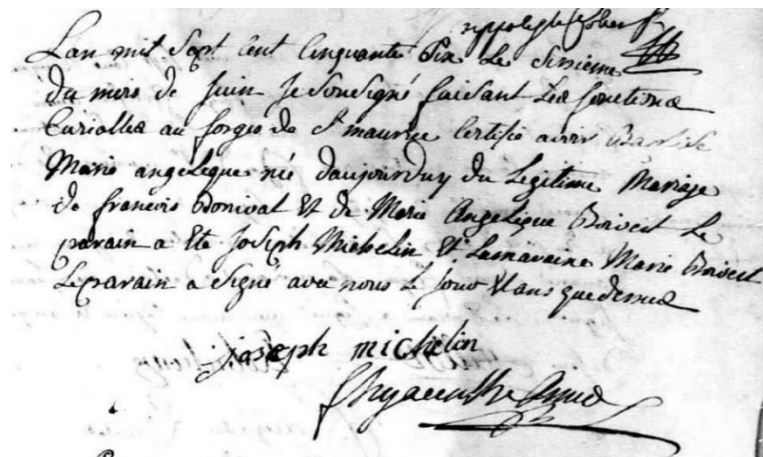 L'an mil Sept Cent Cinquante Six Le Sixieme
du mois de Juin Je Sousigné faisant Les fonctions
Curialles au forges de St maurice Certifie avoir Baptise
Marie angelique née d'aujourduy du Legitime Mariage
de francois Bonival et de Marie Angelique Boivert Le
parain a ete Joseph Michelin et La maraine Marie Boivert
Le parain a Signé avec nous Le Jour et ans que dessus
joseph michelin
f hyacinthe